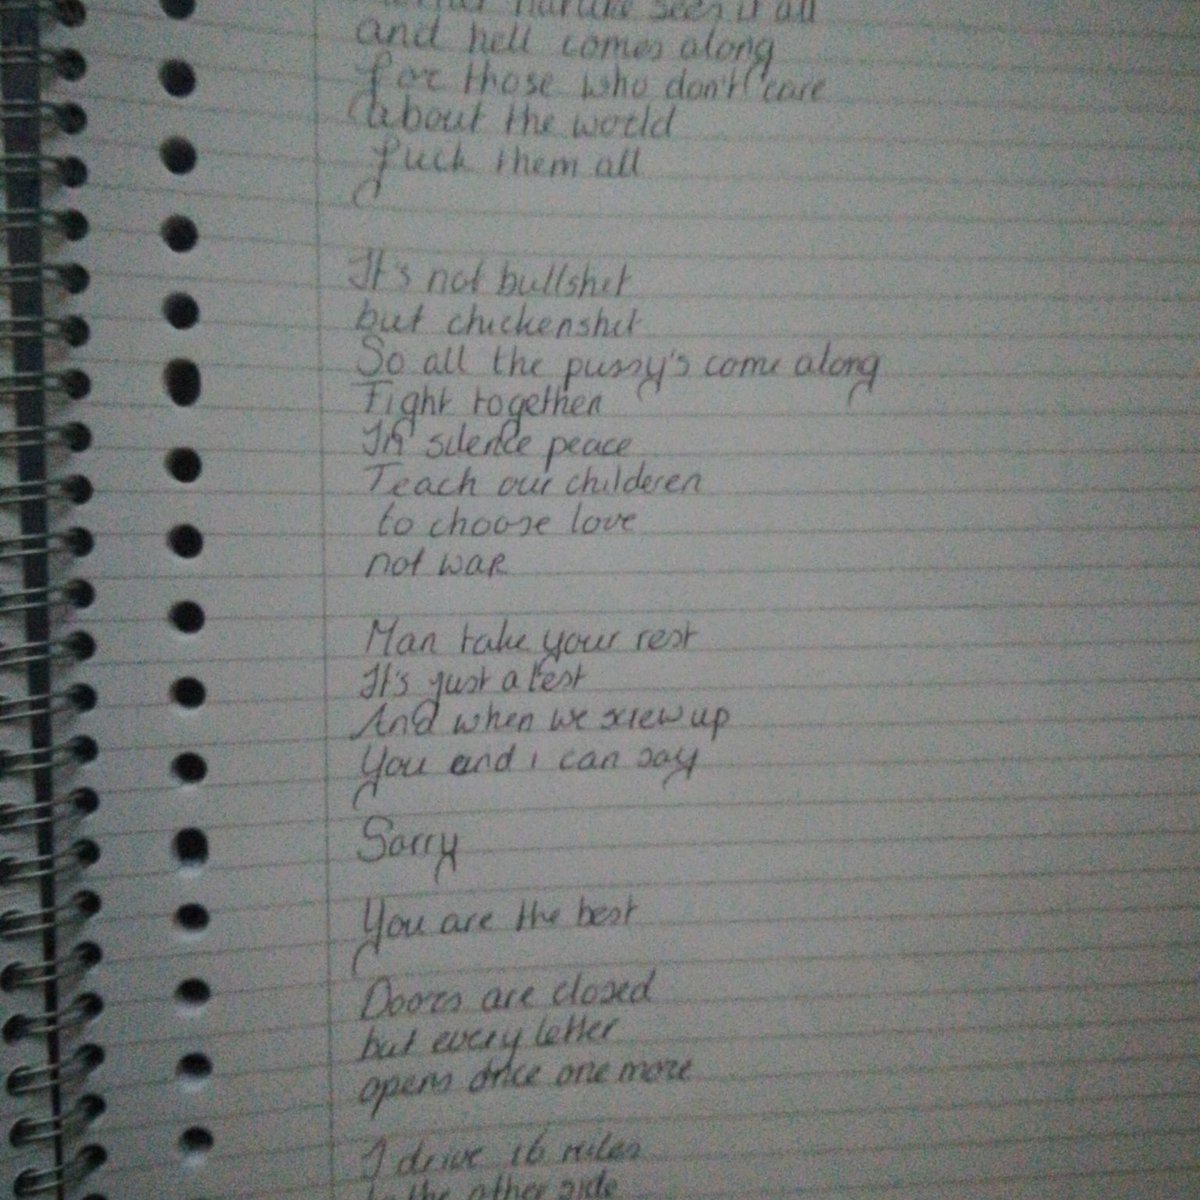 nature sees it all
and hell comes along
for those who don't care
about the world
fuck them all
It's not bullshit
but chickenshit
So all the pussy's come along
Fight together
In silence peace
Teach our childeren
to choose love
not war
Man take your rest
It's just a test
And when we screw up
You and i can say
Sorry
You are the best
Doors are closed
but every letter
opens once one more
I drive 16 miles
to the other side